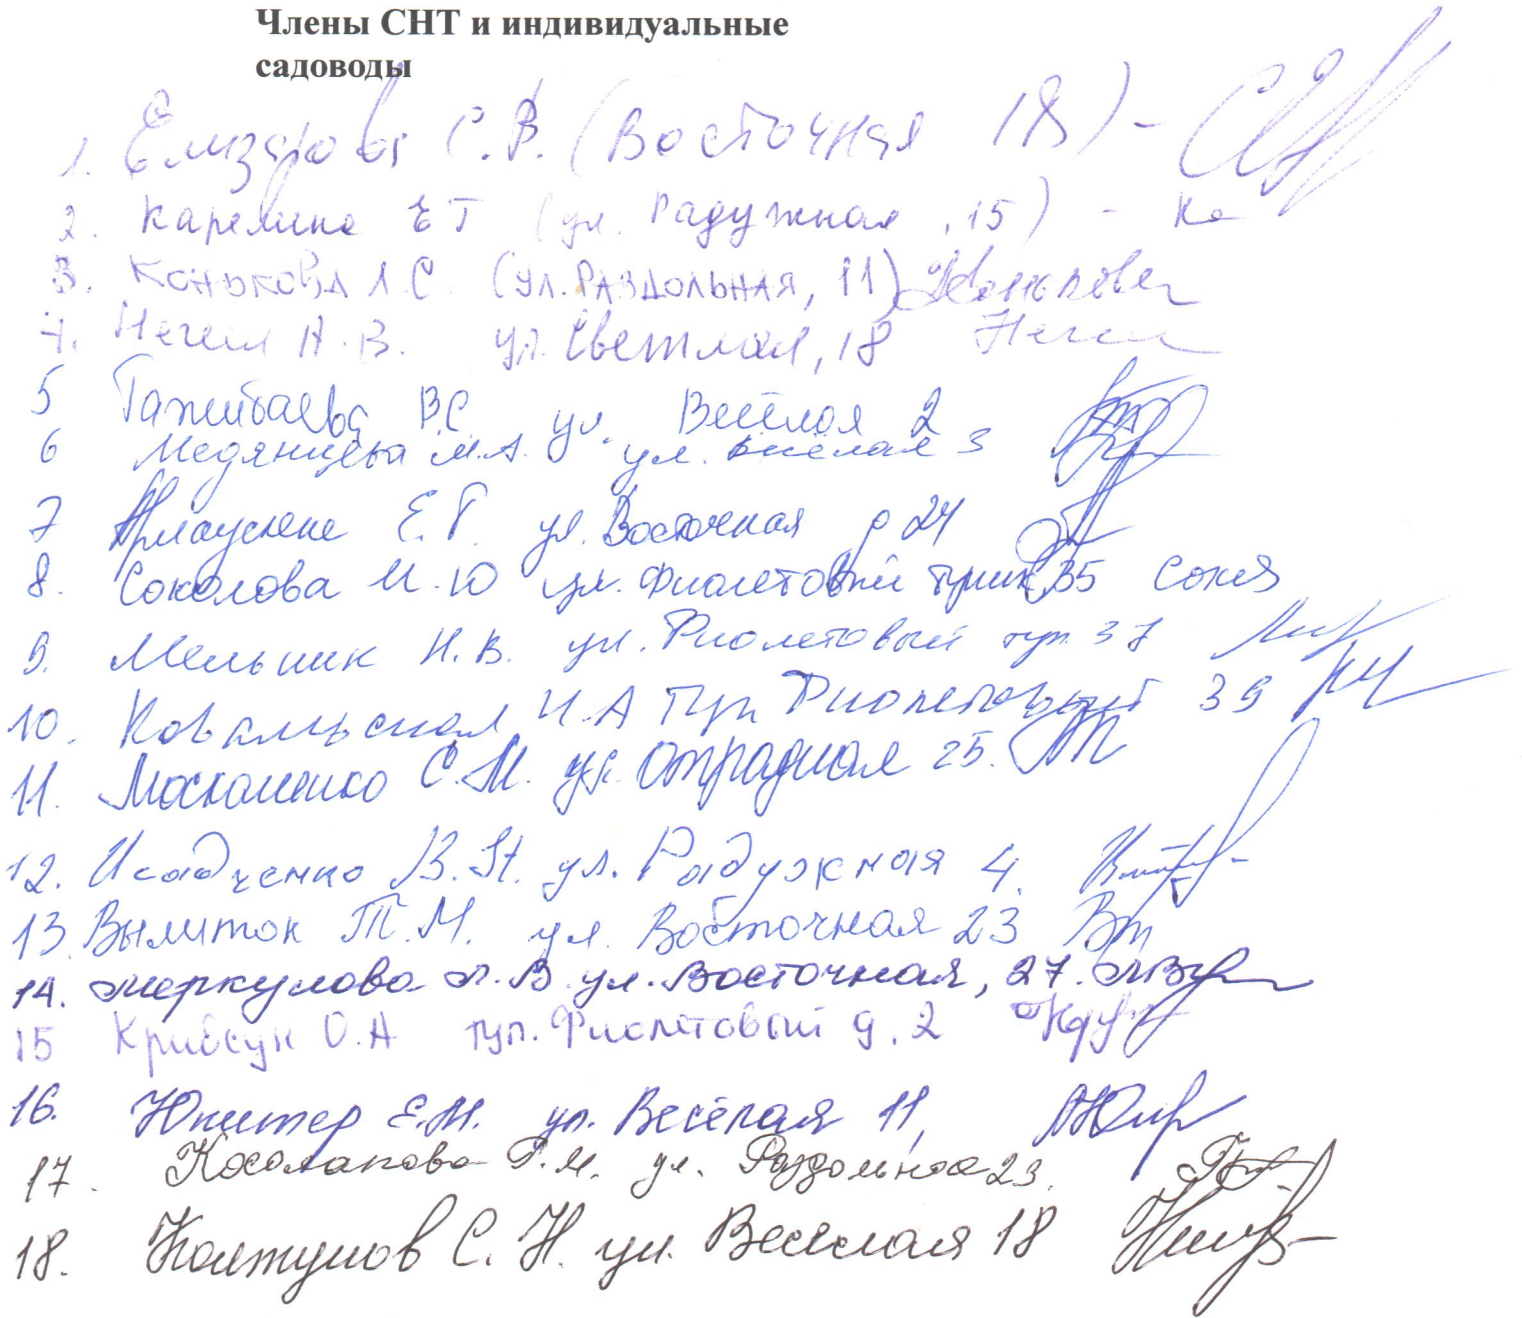 Члены СНТ и индивидуальные
садоводы
1. Елизарова С.В. (Восточная 18) -
2. Карелина Е Г (ул. Радужная, 15) - Ка
3. Конюкова Л.С (ул. Раздольная, 11) Конюкова
4. Негил Н.В. ул. Светлая, 18 Негил
5 Тажибаева В.С ул. Весёлая 2
6 Медянцева М.А. ул. Весёлая 3
7 Е.Г. ул. Восточная д 24
8. Соколова М.Ю ул. Фиолетовый тупик 35 Сокол
9. Мельник Н.В. ул. Фиолетовый туп. 37
10. Ковальская И.А Туп Фиолетовый 39
11. Москаленко С.М. ул. Отрадная 25.
12. Исадченко В.Н. ул. Радужная 4.
13. Вылиток Т.М. ул. Восточная 23 Вт
14. Меркулова Л.В. ул. Восточная, 27.
15 Кривсун О.А туп. Фиолетовый д. 2
16. Юпитер Е.М. ул. Весёлая 11,
17. Косолапова Г.М. ул. Раздольная 23.
18. Колтунов С.Н. ул. Веселая 18